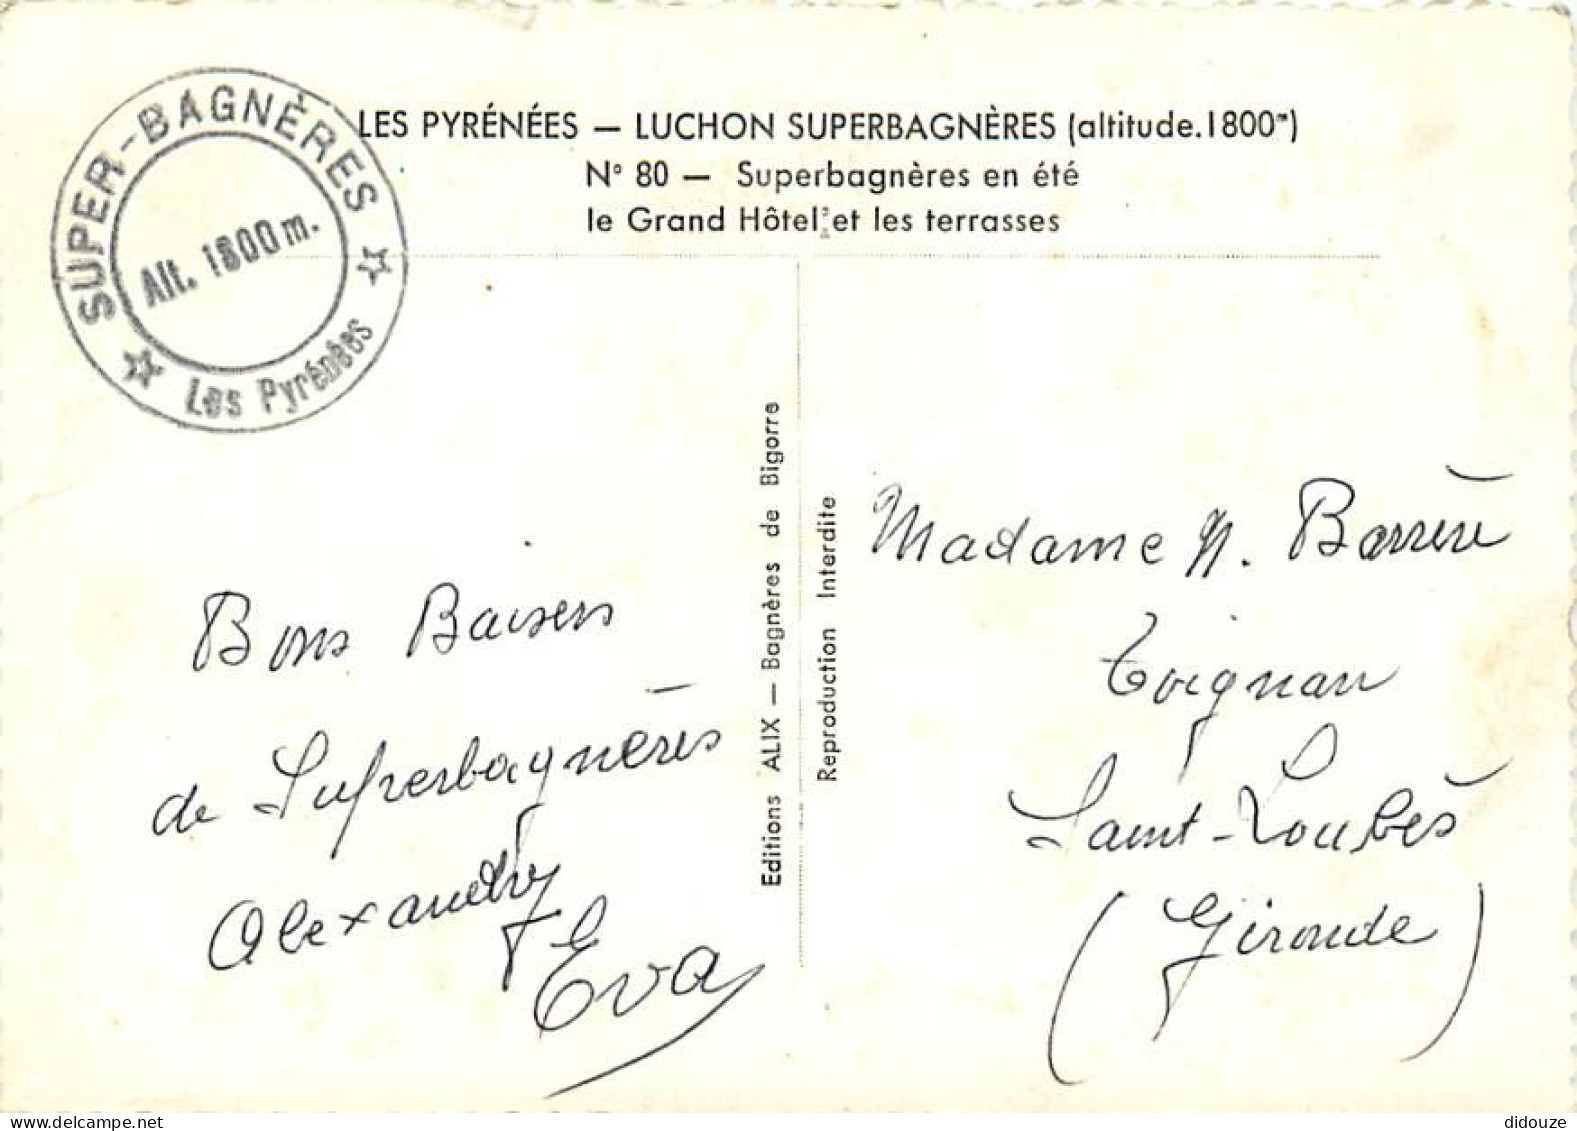 SUPER-BAGNÈRES
Alt. 1800 m.
Les Pyrénées
LES PYRÉNÉES — LUCHON SUPERBAGNÈRES (altitude.1800m)
N° 80 — Superbagnères en été
le Grand Hôtel et les terrasses
Bons Baisers
de Superbagnères
Alexandry
Eva
Editions ALIX — Bagnères de Bigorre
Reproduction Interdite
Madame N. Barrère
Toignan
Saint-Loubès
(Gironde)
didouze